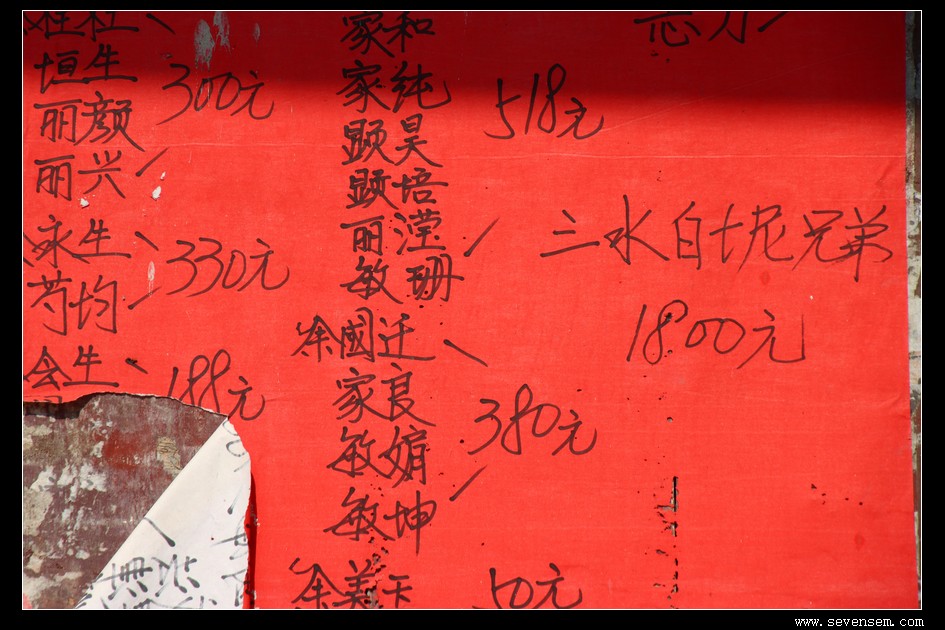 恒生
丽颜
300元
丽兴
永生
芍均
330元
会生
188元
家和
家纯
颢昊
颢培
丽滢
敏珊
518元
徐國迁
家良
敏娟
敏坤
380元
徐美卡
50元
志方
三水白坭兄弟
1800元
www.sevensem.com